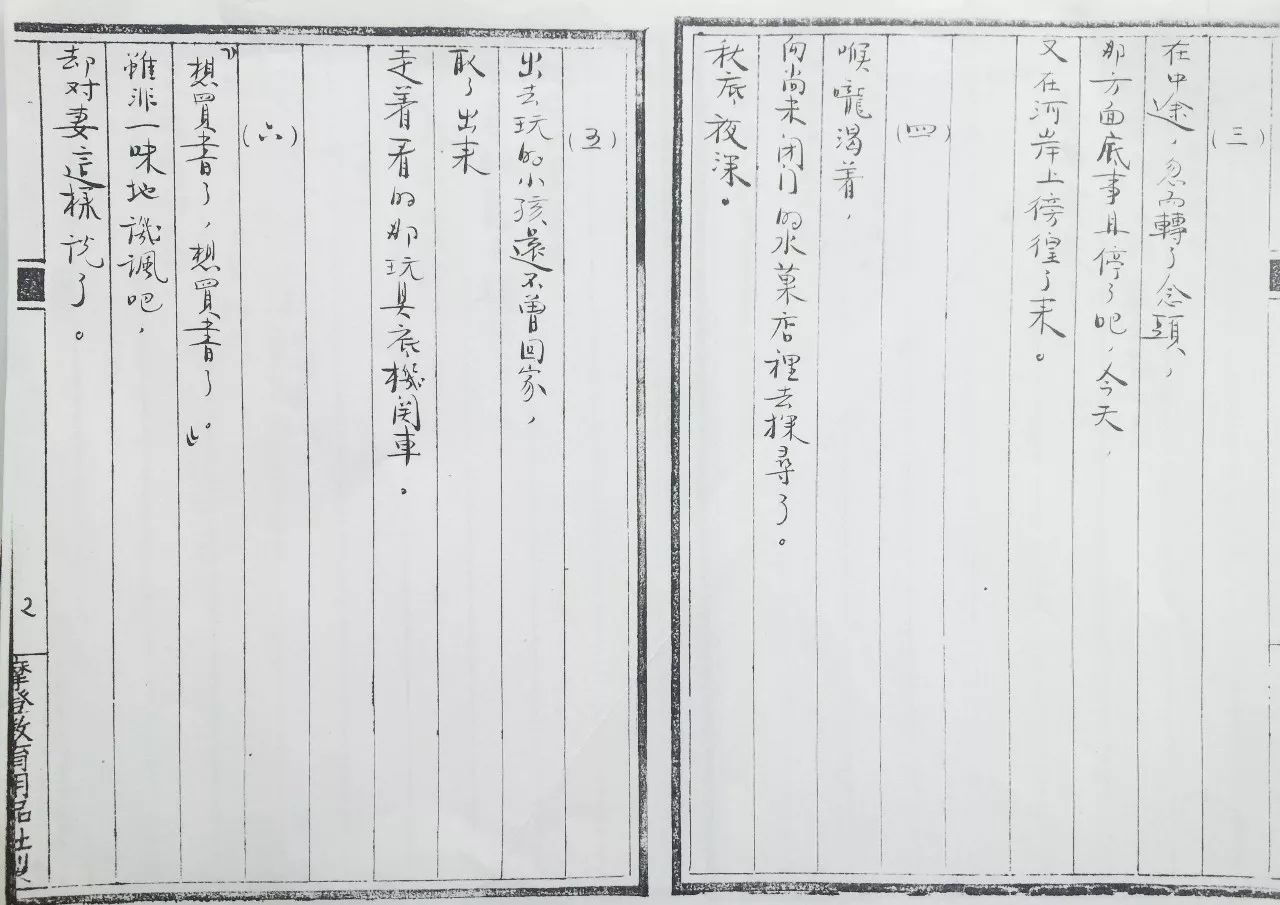 (三)
在中途，忽而轉了念頭，
那方面底事且停了吧，今天，
又在河岸上徬徨了来。
(四)
喉嚨渴着，
向尚未闭门的水菓店裡去探尋了。
秋底夜深。
(五)
出去玩的小孩還不曾回家，
取了出来
走着看的那玩具底機関車。
(六)
「想買書了，想買書了。」
雖非一味地譏諷吧，
却对妻這樣说了。
2
摩登教育用品社製